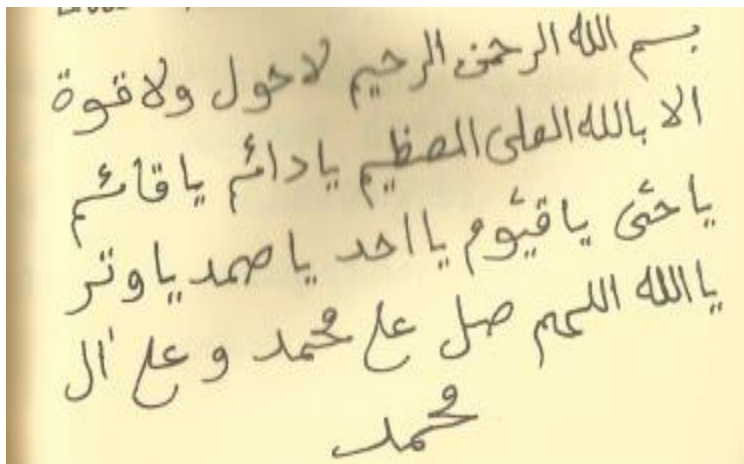 بسم الله الرحمن الرحيم لا حول ولا قوة
الا بالله العلى العظيم يا دائم يا قائم
يا حئ يا قيوم يا احد يا صمد يا وتر
يا الله اللهم صل على محمد و على آل
محمد